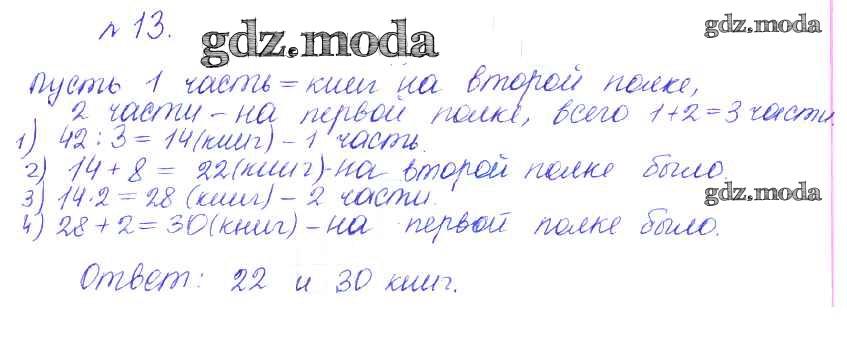 № 13.
gdz.moda
gdz.moda
Пусть 1 часть = книг на второй полке,
2 части - на первой полке, всего 1+2=3 части.
1) 42 : 3 = 14 (книг) - 1 часть.
2) 14 + 8 = 22 (книг) - на второй полке было.
3) 14·2 = 28 (книг) - 2 части.
gdz.moda
4) 28 + 2 = 30 (книг) - на первой полке было.
Ответ: 22 и 30 книг.